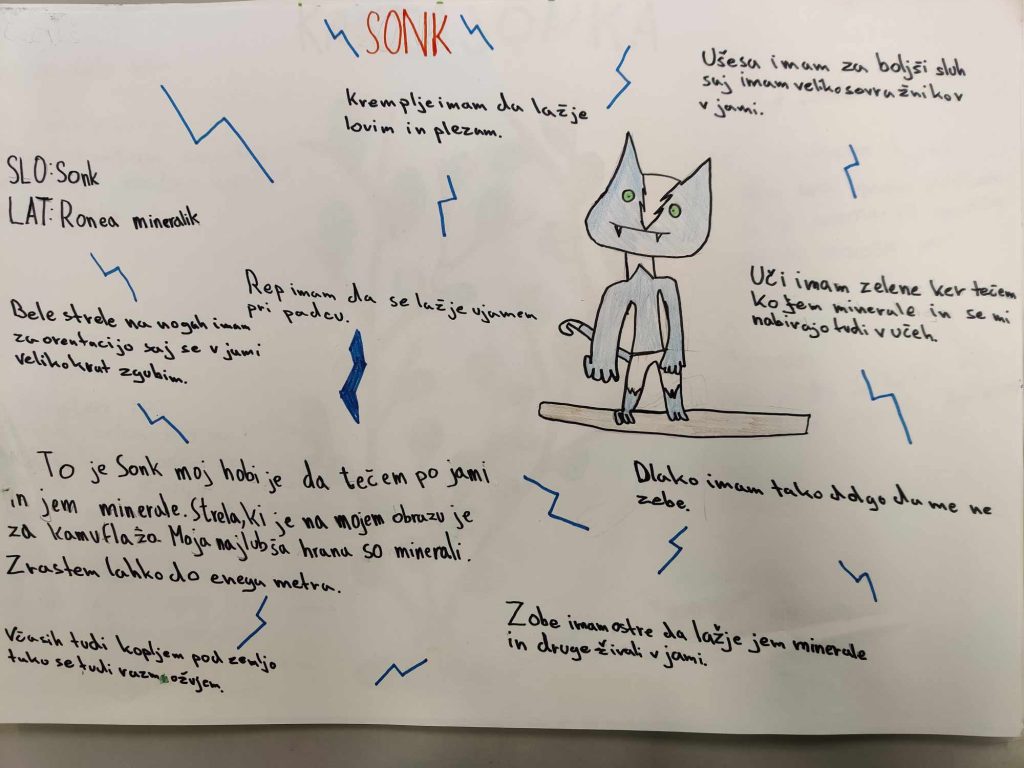 SONK
Kremplje imam da lažje
lovim in plezam.
Ušesa imam za boljši sluh
saj imam veliko sovražnikov
v jami.
SLO: Sonk
LAT: Ronea mineralik
Rep imam da se lažje ujamem
pri padcu.
Uči imam zelene ker tečem
ko jem minerale in se mi
nabirajo tudi v učeh.
Bele strele na nogah imam
za orentacijo saj se v jami
velikokrat zgubim.
To je Sonk moj hobi je da tečem po jami
in jem minerale. Strela, ki je na mojem obrazu je
za kamuflažo. Moja najlubša hrana so minerali.
Zrastem lahko do enega metra.
Dlako imam tako dolgo da me ne
zebe.
Včasih tudi kopljem pod zemljo
tako se tudi
Zobe imam ostre da lažje jem minerale
in druge živali v jami.